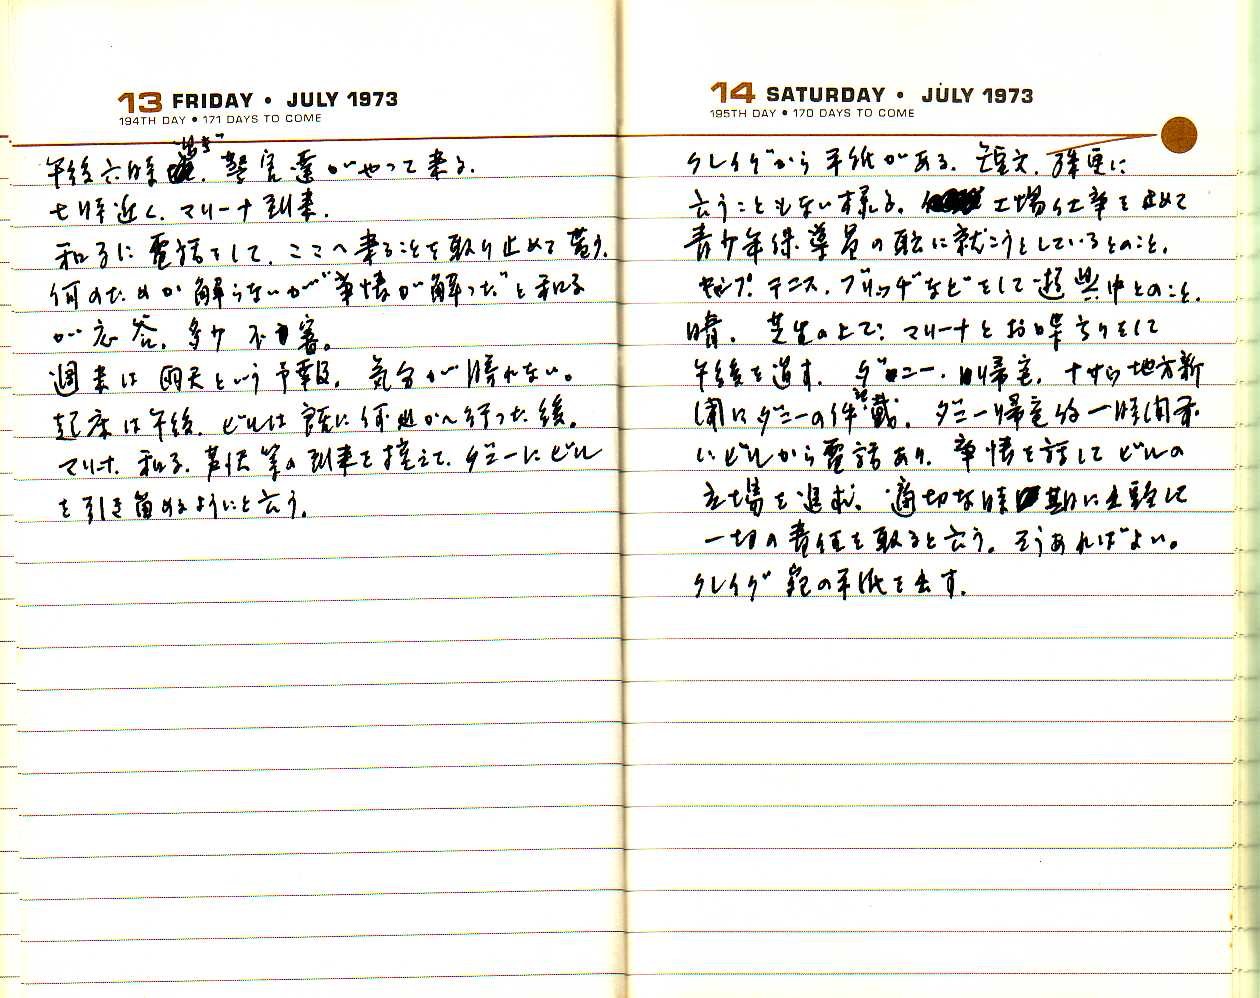 13 FRIDAY • JULY 1973
194TH DAY • 171 DAYS TO COME
午後六時過ぎ、警官達がやって来る。
七時近く、マリーナ到来。
和子に電話をして、ここへ来ることを取り止めて貰う。
何のためか解らないが"事情が解った"と和子
が応答。多少不審。
週末は雨天という予報。気分が勝れない。
起床は午後。ビルは既に何処かへ行った後。
マリーナ、和子、芦沢等の到来を控えて、ダニーにビル
を引き留めるようにと言う。
14 SATURDAY • JULY 1973
195TH DAY • 170 DAYS TO COME
クレイグから手紙がある。短文。殊更に
言うこともない様子。工場仕事を止めて
青少年保導員の職に就こうとしているとのこと。
キャンプ、テニス、ブリッヂなどをして遊興中とのこと。
晴。芝生の上で、マリーナとお喋りをして
午後を過す。ダニー、帰宅。ナサウ地方新
聞にダニーの件載る。ダニー帰宅約一時間前
にビルから電話あり。事情を話してビルの
立場を追求。適切な時期に出頭して
一切の責任を取ると言う。そうあればよい。
クレイグ宛の手紙を出す。